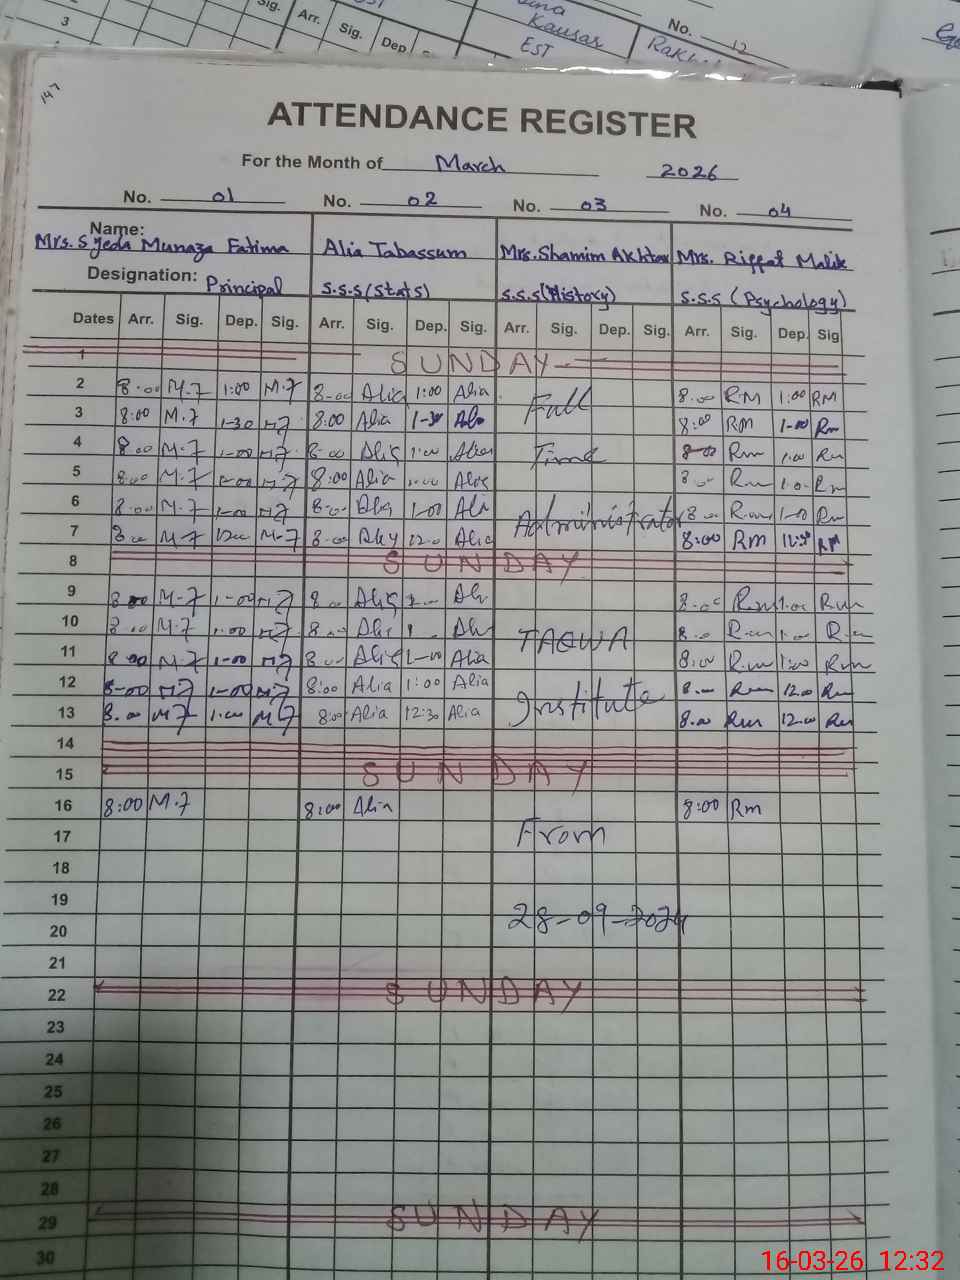 3
Sig. Arr. Sig. Dep
Kausar
EST
No. 12
147
ATTENDANCE REGISTER
For the Month of March 2026
No. 01 No. 02 No. 03 No. 04
Name:
Mrs. Syeda Munaza Fatima Alia Tabassum Mrs. Shamim Akhtar Mrs. Riffat Malik
Designation: Principal S.S.S (Stats) S.S.S (History) S.S.S (Psychology)
Dates Arr. Sig. Dep. Sig. Arr. Sig. Dep. Sig. Arr. Sig. Dep. Sig. Arr. Sig. Dep. Sig
1 SUNDAY
2 8.00 M.7 1:00 M.7 8-00 Alia 1:00 Alia Full 8.00 RM 1:00 RM
3 8:00 M.7 1-30 M7 8:00 Alia 1-30 Alia 8:00 RM 1-00 Rm
4 8.00 M.7 1-00 M7 8-00 Alia 1:00 Alia Time 8-00 Rm 1.00 Rm
5 8.00 M.7 1-00 M.7 8:00 Alia 1.00 Alia 8.00 Rm 1.0 Rm
6 8.00 M.7 1-00 M7 8.00 Alia 1-00 Ali Administrator 8.00 Rm 1-00 Rm
7 8.00 M-7 12.00 M-7 8-00 Aliy 12.0 Alia 8:00 Rm 12:30 RM
8 SUNDAY
9 8.00 M-7 1-00 M7 8.00 Alia Ali 8.00 Rm 1.00 Rm
10 8.00 M.7 1.00 M7 8.00 Alia Ali TAQWA 8.0 Rm 1.00 Rm
11 8.00 M.7 1-00 M7 8.00 Alia 1-00 Alia 8:00 R.m 1:00 Rm
12 8-00 M7 1-00 M7 8:00 Alia 1:00 Alia Institute 8.00 Rm 12.00 Rm
13 8.00 M7 1.00 M7 8:00 Alia 12:30 Alia 8.00 Rm 12.00 Rm
14
15 SUNDAY
16 8:00 M.7 8:00 Alia 8:00 Rm
17 From
18
19
20 28-09-2024
21
22 SUNDAY
23
24
25
26
27
28
29 SUNDAY
30
16-03-26 12:32